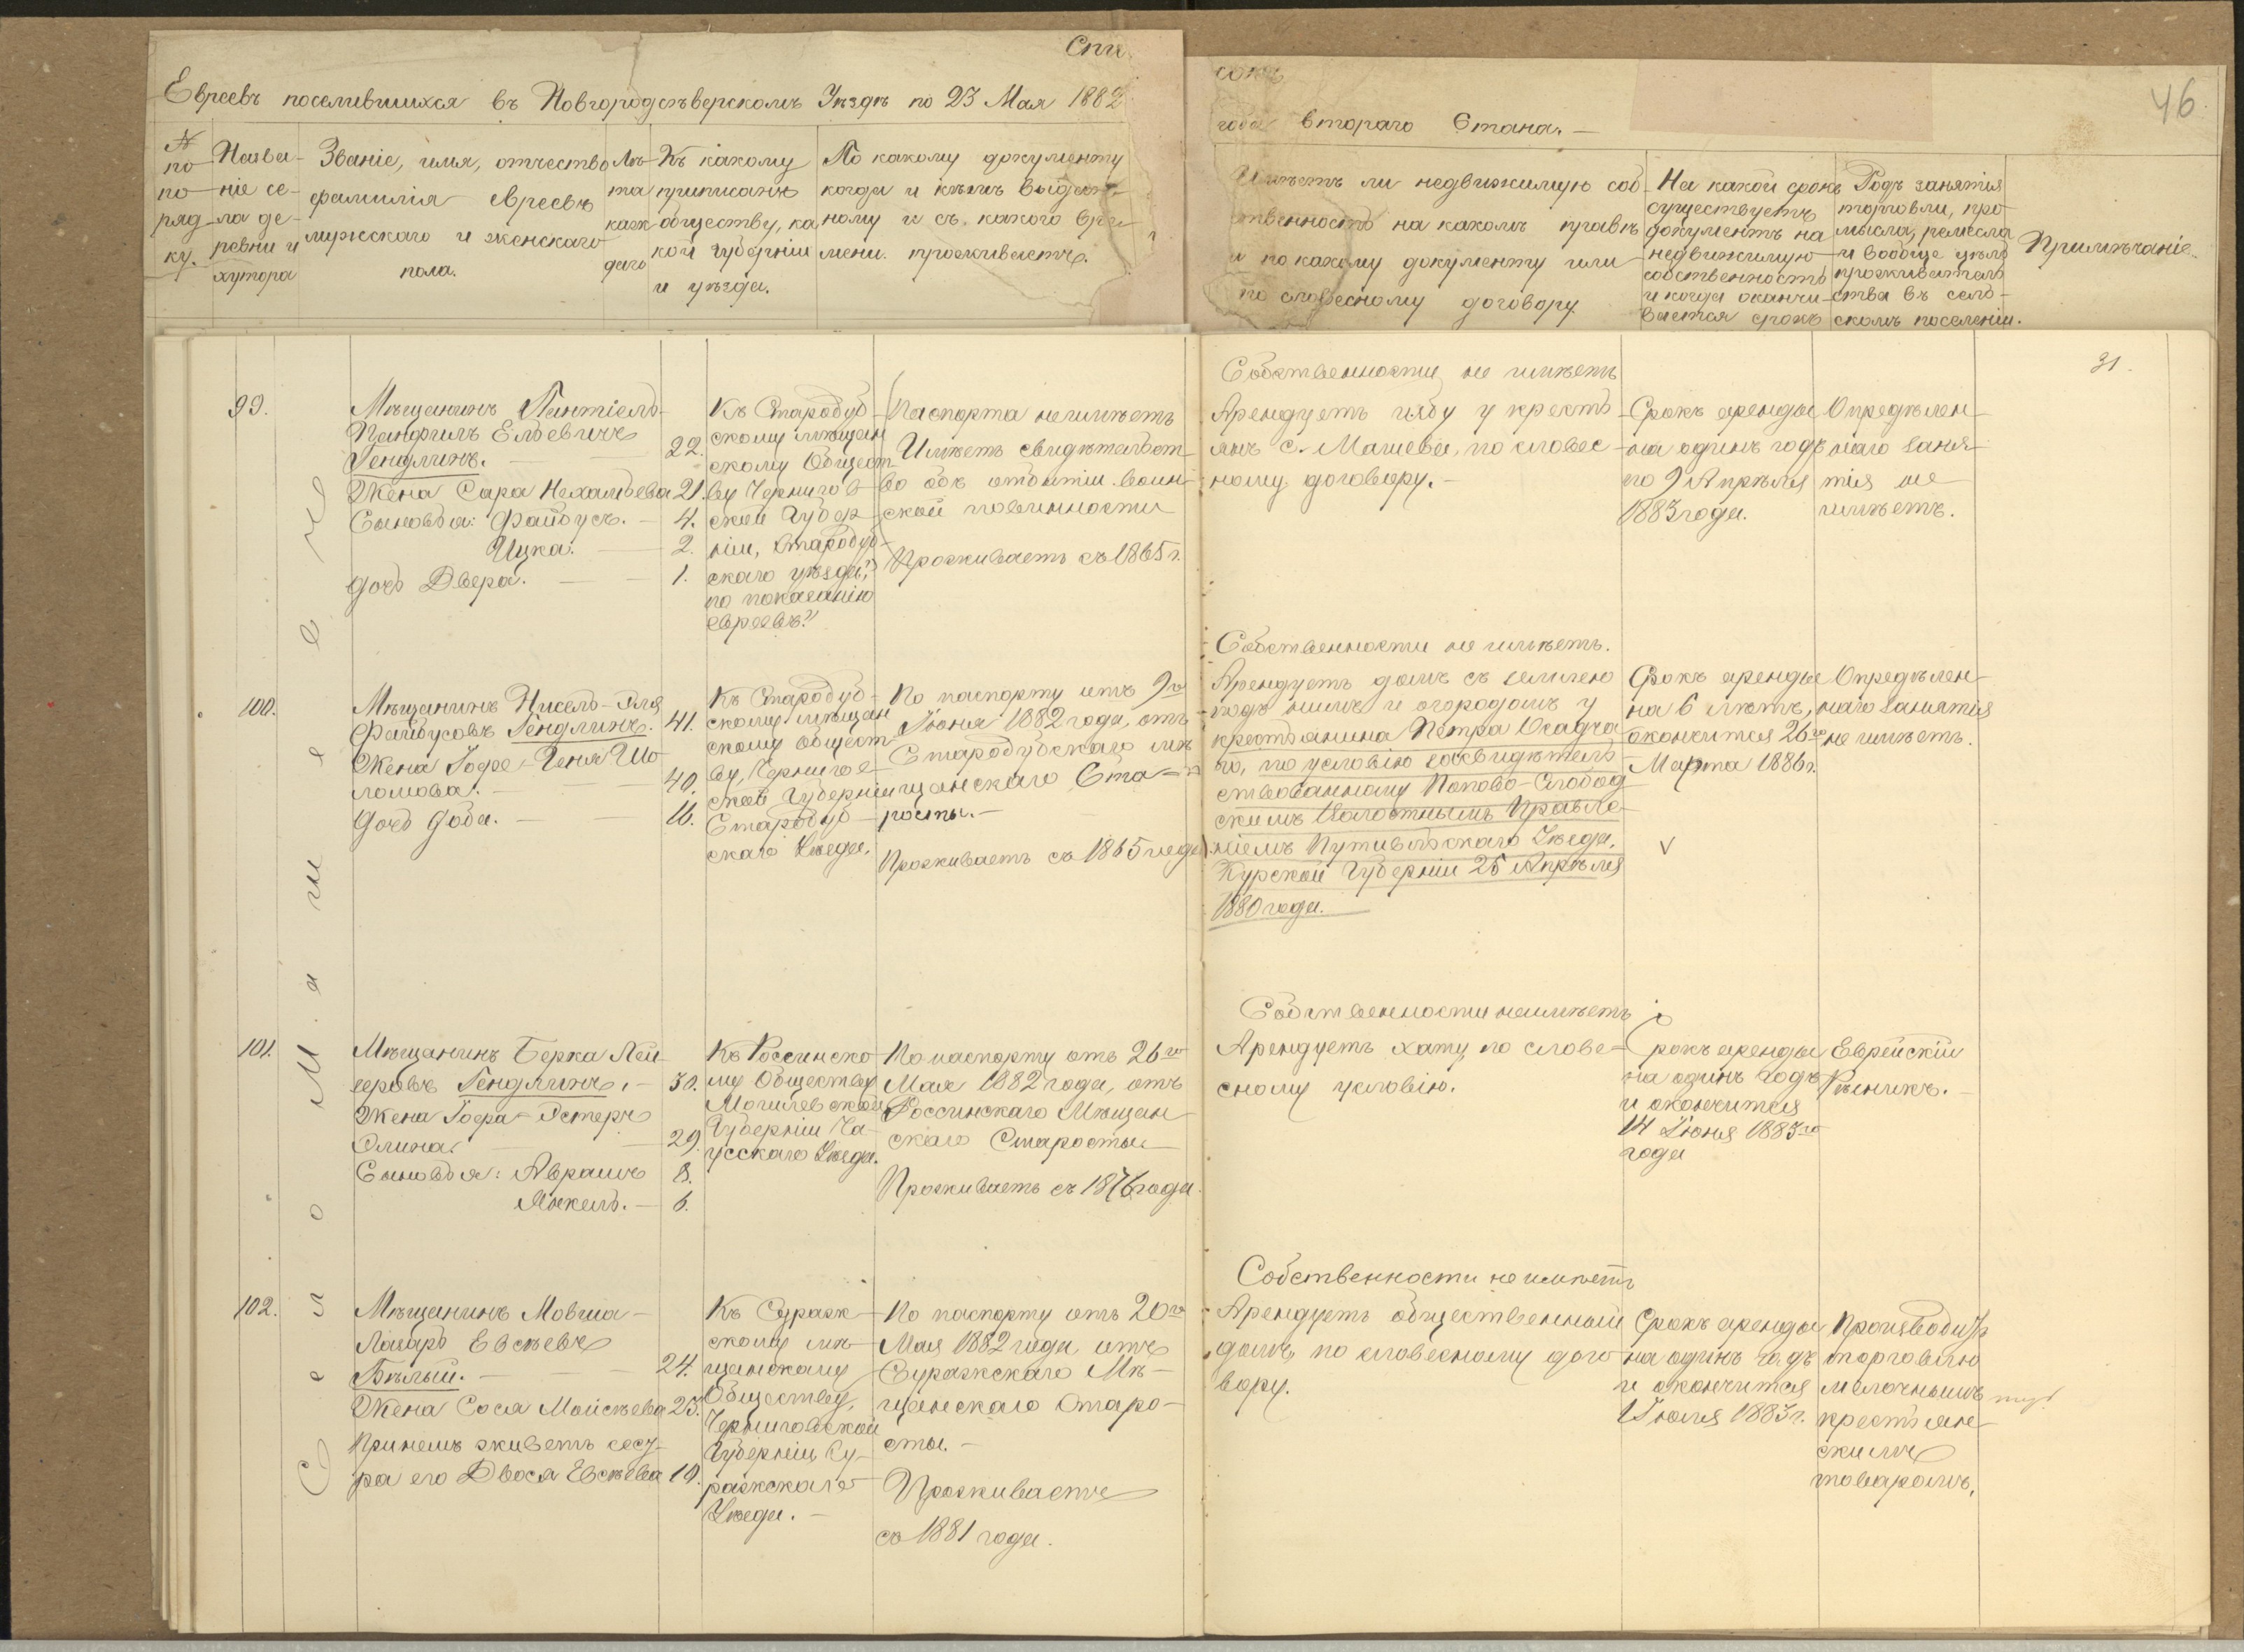 Спи
сокъ
46
Евреевъ поселившихся въ Новгородсѣверскомъ Уѣздѣ по 23 Мая 1882
года втораго Стана. —
№
по
по
ряд
ку.
Назва-
ніе се-
ла де-
ревни и
хутора
Званіе, имя, отчество
фамилія евреевъ
мужескаго и женскаго
пола.
Лѣ-
та
каж
даго
Къ какому
приписанъ
обществу, ка
кой губерніи
и уѣзда.
По какому документу
когда и кѣмъ выдан-
ному и съ какого вре
мени проживаетъ.
Имѣетъ ли недвижимую соб-
ственность на какомъ правѣ
и по какому документу или
по словесному договору
На какой срокъ
существуетъ
документъ на
недвижимую
собственность
и когда оканчи-
вается срокъ
Родъ занятія
торговли, про
мысла, ремесла
и вообще цѣль
прожива
ства въ сель-
скомъ поселеніи.
Примѣчаніе.
31.
Село Машево
99.
Мѣщанинъ Пантіель-
Панфилъ Ельевичъ
Гендлинъ. — 22.
Жена Сара Нехамьева 21.
Сыновья: Файбусъ. — 4.
Ицка. — 2.
дочь Двера. — 1.
Къ Стародуб-
скому мѣщан
скому Общест-
ву Чернигов-
ской Губер
ніи, Стародуб-
скаго уѣзда,"
по показанію
евреевъ."
Паспорта неимѣетъ
Имѣетъ свидѣтельст-
во объ отбытіи воин-
ской повинности
Проживаетъ съ 1865 г.
Собственности не имѣетъ
Арендуетъ избу у кресть
янъ с. Машева, по словес-
ному договору. —
Срокъ аренды
на одинъ годъ
по 9 Апрѣля
1883 года.
Опредѣлен-
наго заня-
тія не
имѣетъ.
100.
Мѣщанинъ Нисель-Эля
Файбусовъ Гендлинъ. 41.
Жена Гофе-Геня Шо
ломова. — 40.
Дочь Доба. — 16.
Къ Стародуб-
скому мѣщан
скому Общест-
ву, Чернигов-
ской Губерніи
Стародуб-
скаго Уѣзда.
По паспорту отъ 9го
Іюня 1882 года, отъ
Стародубскаго мѣ
щанскаго Ста-
росты. —
Проживаетъ съ 1865 года
Собственности не имѣетъ.
Арендуетъ домъ съ землею
подъ нимъ и огородомъ у
крестьянина Петра Осадча
го, по условію засвидѣтель
ствованному Попово-Слобод
скимъ Волостнымъ Правле-
ніемъ Путивльскаго Уѣзда,
Курской Губерніи 25 Апрѣля
1880 года.
Срокъ аренды
на 6 лѣтъ,
окончится 26го
Марта 1886 г.
V
Опредѣлен-
наго занятія
не имѣетъ.
101.
Мѣщанинъ Берка Лей-
зеровъ Гендлинъ. — 30.
Жена Гофа-Эстеръ
Элина. — 29.
Сыновья: Абрамъ 8.
Янкель. — 6.
Къ Россинско
му Обществу
Могилевской
Губерніи Ча-
усскаго Уѣзда.
По паспорту отъ 26го
Мая 1882 года, отъ
Россинскаго Мѣщан
скаго Старосты
Проживаетъ съ 1876 года.
Собственности неимѣетъ
Арендуетъ хату по слове-
сному условію.
Срокъ аренды
на одинъ годъ
и окончится
14 Іюня 1883го
года
Еврейскій
Рѣзникъ. —
102.
Мѣщанинъ Мовша-
Лазарь Евсѣевъ
Бѣлый. — 24.
Жена Сося Мойсѣева 23.
При немъ живетъ сест-
ра его Двося Евсѣева 19.
Къ Сураж-
скому мѣ-
щанскому
Обществу,
Черниговской
Губерніи Су-
ражскаго
Уѣзда. —
По паспорту отъ 20го
Мая 1882 года отъ
Суражскаго Мѣ-
щанскаго Старо-
сты. —
Проживаетъ
съ 1881 года.
Собственности не имѣетъ
Арендуетъ общественный
домъ, по словесному дого
вору.
Срокъ аренды
на одинъ годъ
и окончится
1 Іюля 1883 г.
Производитъ
торговлю
мелочнымъ
крестьян-
скимъ
товаромъ.